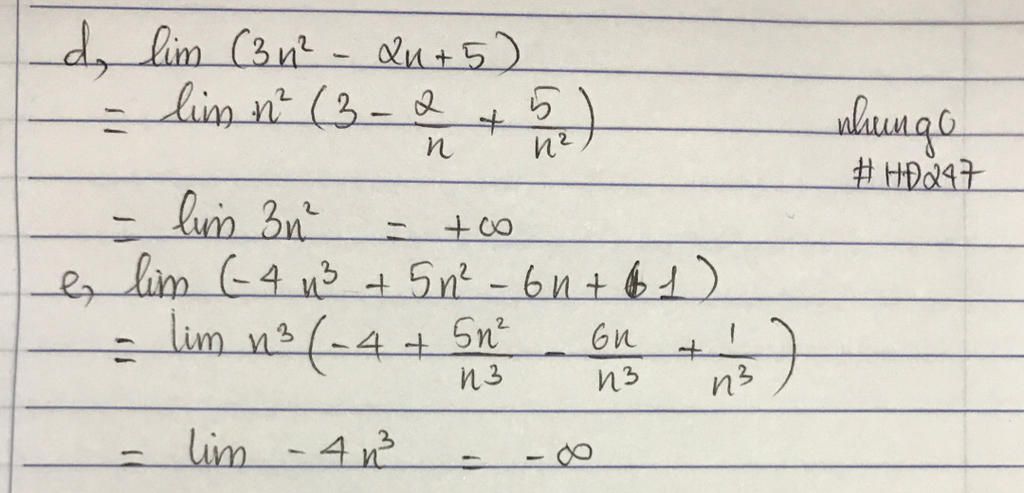 d, lim (3n² - 2n + 5)
= lim n² (3 - 2/n + 5/n²)
nhung6
#HD247
= lim 3n² = +∞
e, lim (-4n³ + 5n² - 6n + 1)
= lim n³ (-4 + 5n²/n³ - 6n/n³ + 1/n³)
= lim -4n³ = -∞